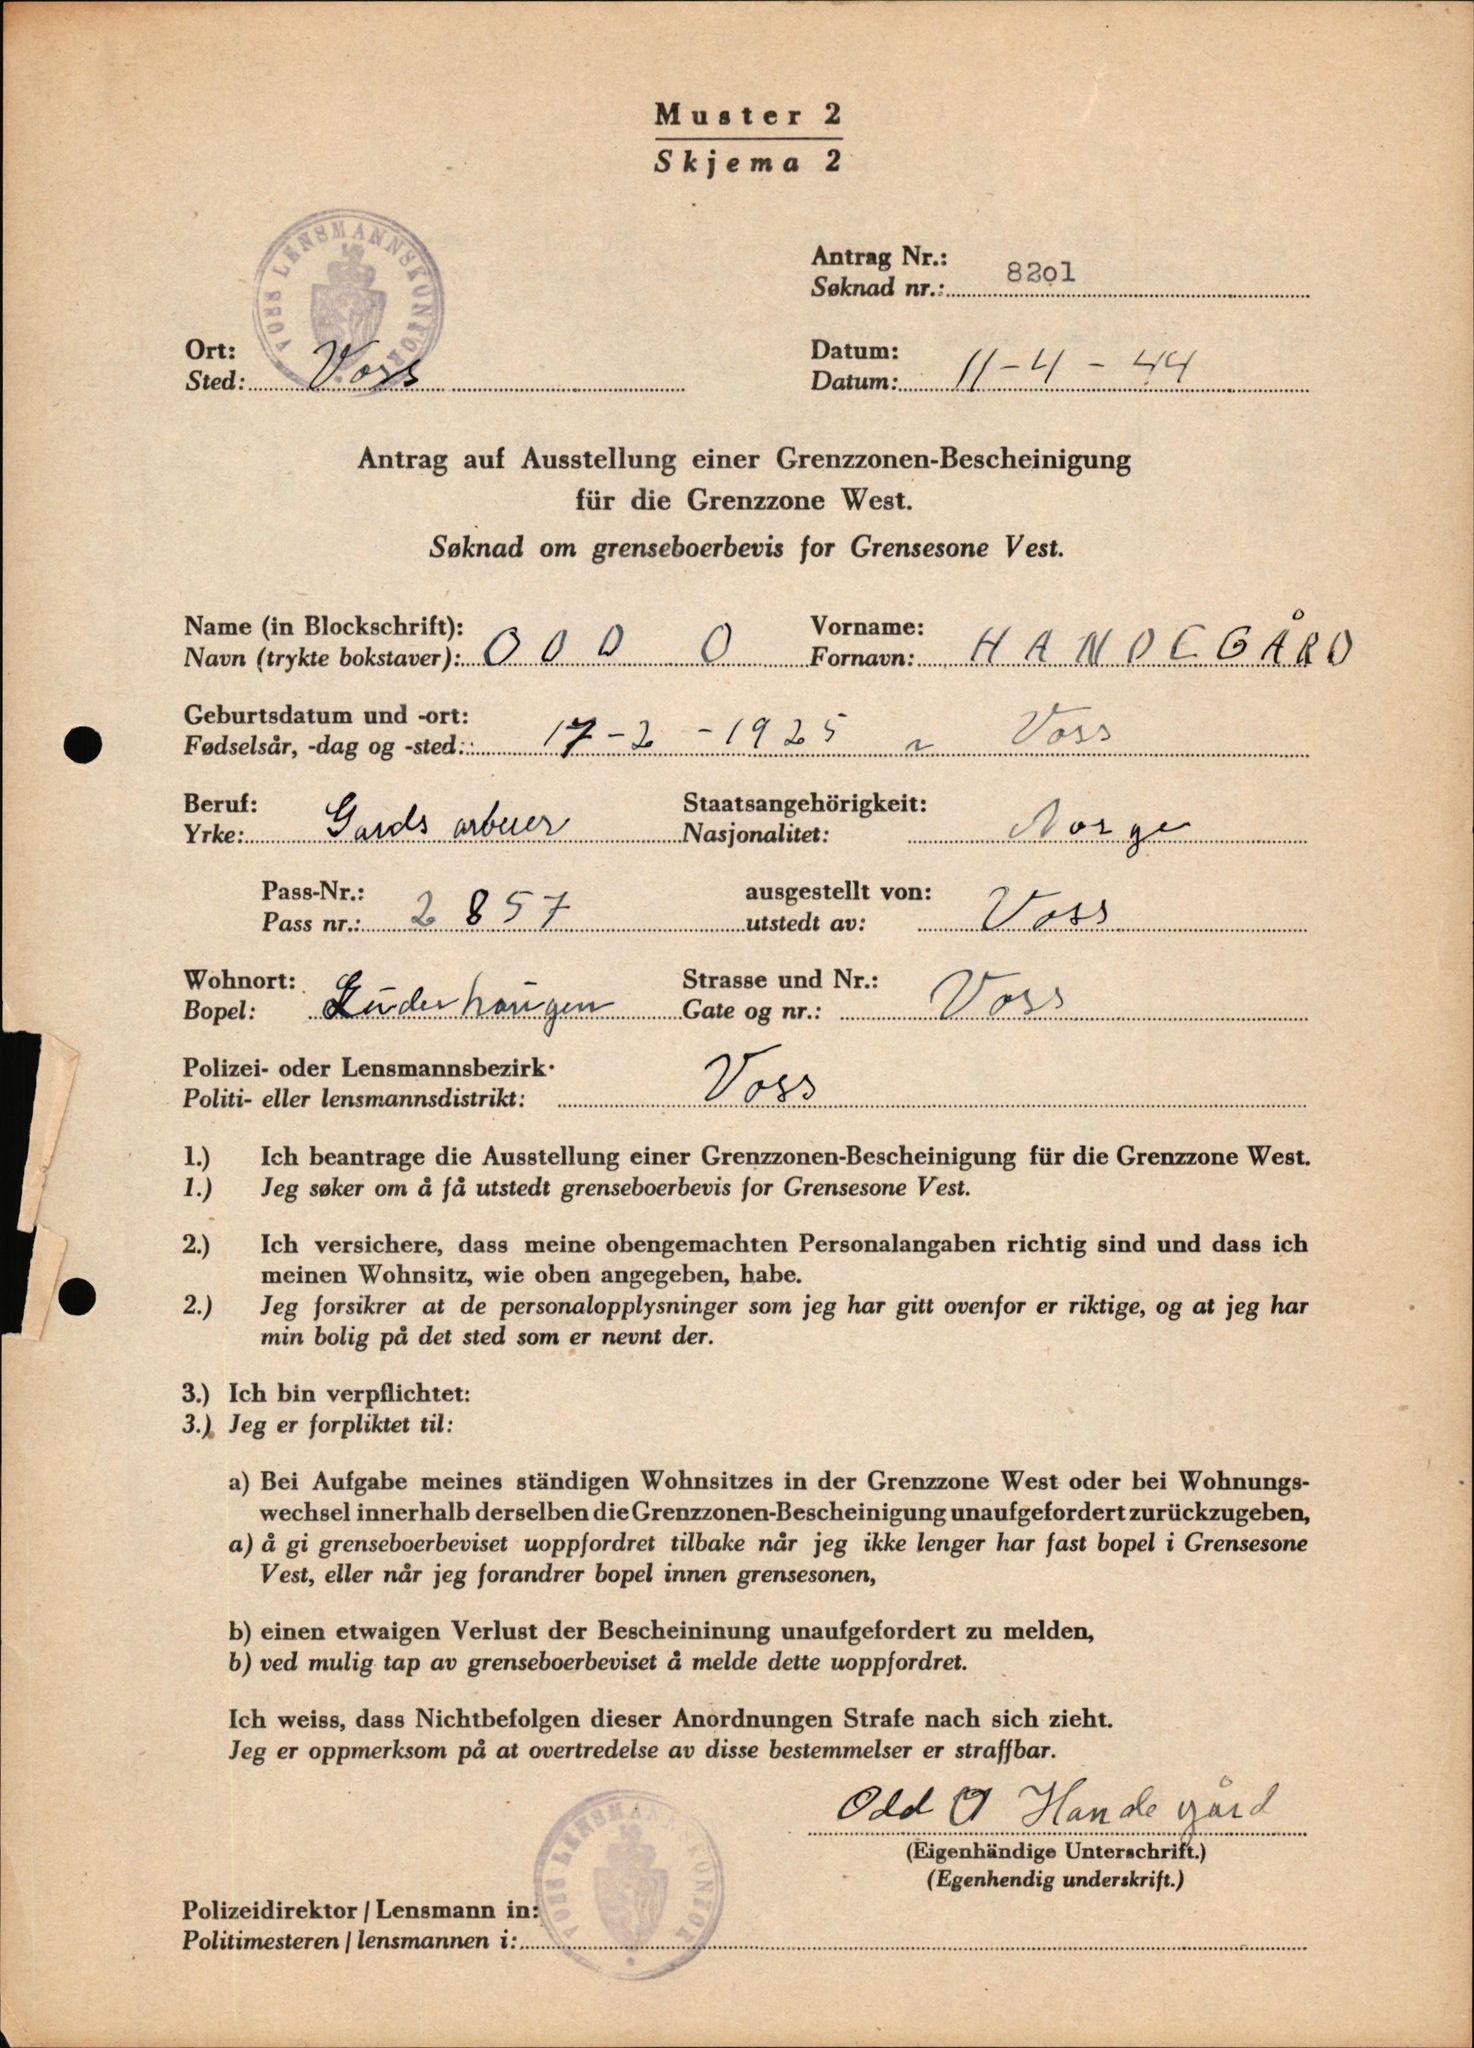 Muster 2
Skjema 2
VOSS LENSMANNSKONTOR
Antrag Nr.:
Søknad nr.: 8201
Ort:
Sted: Voss
Datum:
Datum: 11-4-44
Antrag auf Ausstellung einer Grenzzonen-Bescheinigung
für die Grenzzone West.
Søknad om grenseboerbevis for Grensesone Vest.
Name (in Blockschrift):
Navn (trykte bokstaver): ODD O
Vorname:
Fornavn: HANDEGÅRD
Geburtsdatum und -ort:
Fødselsår, -dag og -sted: 17-2-1925 Voss
Beruf:
Yrke: Gards arbeier
Staatsangehörigkeit:
Nasjonalitet: Norge
Pass-Nr.:
Pass nr.: 2857
ausgestellt von:
utstedt av: Voss
Wohnort:
Bopel:
Strasse und Nr.:
Gate og nr.: Voss
Polizei- oder Lensmannsbezirk.
Politi- eller lensmannsdistrikt: Voss
1.) Ich beantrage die Ausstellung einer Grenzzonen-Bescheinigung für die Grenzzone West.
1.) Jeg søker om å få utstedt grenseboerbevis for Grensesone Vest.
2.) Ich versichere, dass meine obengemachten Personalangaben richtig sind und dass ich
meinen Wohnsitz, wie oben angegeben, habe.
2.) Jeg forsikrer at de personalopplysninger som jeg har gitt ovenfor er riktige, og at jeg har
min bolig på det sted som er nevnt der.
3.) Ich bin verpflichtet:
3.) Jeg er forpliktet til:
a) Bei Aufgabe meines ständigen Wohnsitzes in der Grenzzone West oder bei Wohnungs-
wechsel innerhalb derselben die Grenzzonen-Bescheinigung unaufgefordert zurückzugeben,
a) å gi grenseboerbeviset uoppfordret tilbake når jeg ikke lenger har fast bopel i Grensesone
Vest, eller når jeg forandrer bopel innen grensesonen,
b) einen etwaigen Verlust der Bescheininung unaufgefordert zu melden,
b) ved mulig tap av grenseboerbeviset å melde dette uoppfordret.
Ich weiss, dass Nichtbefolgen dieser Anordnungen Strafe nach sich zieht.
Jeg er oppmerksom på at overtredelse av disse bestemmelser er straffbar.
Odd O Handegård
(Eigenhändige Unterschrift.)
(Egenhendig underskrift.)
VOSS LENSMANNSKONTOR
Polizeidirektor / Lensmann in:
Politimesteren / lensmannen i: